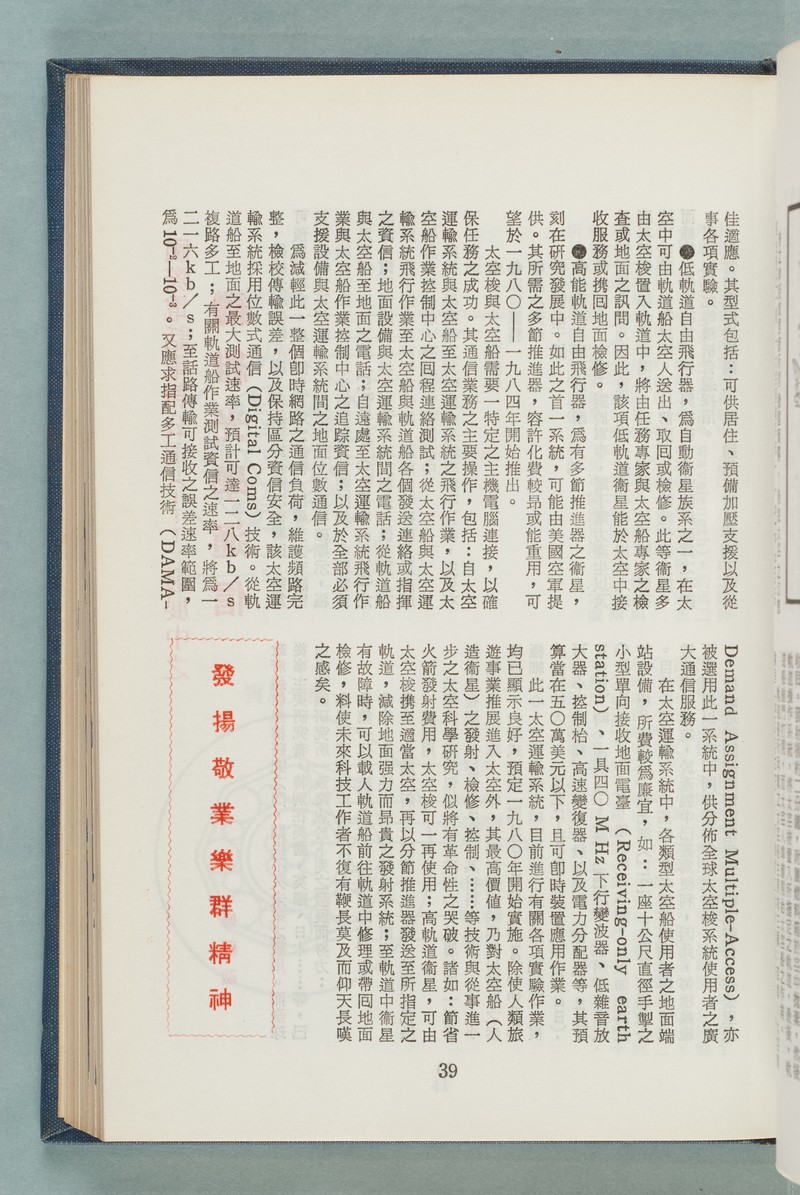 佳適應。其型式包括：可供居住、預備加壓支援以及從
事各項實驗。
●低軌道自由飛行器，爲自動衞星族系之一，在太
空中可由軌道船太空人送出、取囘或檢修。此等衞星多
由太空梭置入軌道中，將由任務專家與太空船專家之檢
查或地面之訊問。因此，該項低軌道衞星能於太空中接
收服務或携囘地面檢修。
●高能軌道自由飛行器，爲有多節推進器之衞星，
刻在研究發展中。如此之首一系統，可能由美國空軍提
供。其所需之多節推進器，容許化費較昻或能重用，可
望於一九八〇——一九八四年開始推出。
太空梭與太空船需要一特定之主機電腦連接，以確
保任務之成功。其通信業務之主要操作，包括：自太空
運輸系統與太空船至太空運輸系統之飛行作業，以及太
空船作業控制中心之囘程連絡測試；從太空船與太空運
輸系統飛行作業至太空船與軌道船各個發送連絡或指揮
之資信；地面設備與太空運輸系統間之電話；從軌道船
與太空船至地面之電話；自遠處至太空運輸系統飛行作
業與太空船作業控制中心之追踪資信；以及於全部必須
支援設備與太空運輸系統間之地面位數通信。
爲減輕此一整個卽時網路之通信負荷，維護頻路完
整，檢校傳輸誤差，以及保持區分資信安全，該太空運
輸系統採用位數式通信（Digital Coms）技術。從軌
道船至地面之最大測試速率，預計可達一二八kb／s
複路多工；有關軌道船作業測試資信之速率，將爲一
二一六kb／s；至話路傳輸可接收之誤差速率範圍，
爲10⁻²—10⁻³。又應求指配多工通信技術（DAMA-
Demand Assignment Multiple-Access），亦
被選用此一系統中，供分佈全球太空梭系統使用者之廣
大通信服務。
在太空運輸系統中，各類型太空船使用者之地面端
站設備，所費較爲廉宜，如：一座十公尺直徑手掣之
小型單向接收地面電臺（Receiving-only earth
station）、一具四〇MHz下行變波器、低雜音放
大器、控制枱、高速變復器、以及電力分配器等，其預
算當在五〇萬美元以下，且可卽時裝置應用作業。
此一太空運輸系統，目前進行有關各項實驗作業，
均已顯示良好，預定一九八〇年開始實施。除使人類旅
遊事業推展進入太空外，其最高價值，乃對太空船（人
造衞星）之發射、檢修、控制、……等技術與從事進一
步之太空科學研究，似將有革命性之突破。諸如：節省
火箭發射費用，太空梭可一再使用；高軌道衞星，可由
太空梭携至適當太空，再以分節推進器發送至所指定之
軌道，減除地面强力而昻貴之發射系統；至軌道中衞星
有故障時，可以載人軌道船前往軌道中修理或帶囘地面
檢修，料使未來科技工作者不復有鞭長莫及而仰天長嘆
之感矣。
發揚敬業樂群精神
39